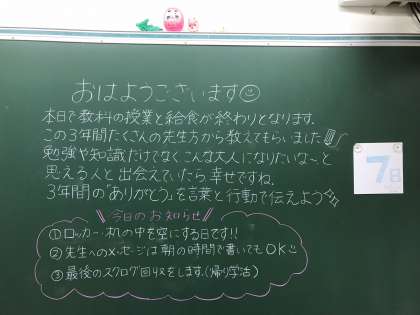 おはようございます
本日で教科の授業と給食が終わりとなります。
この3年間たくさんの先生方から教えてもらいました
勉強や知識だけでなくこんな大人になりたいな〜と
思える人と出会えていたら幸せですね。
3年間の"ありがとう"を言葉と行動で伝えよう
今日のお知らせ
①ロッカー・机の中を空にする日です!!
②先生へのメッセージは朝の時間で書いてもOK
③最後のスクログ回収をします。(帰り学活)
7日